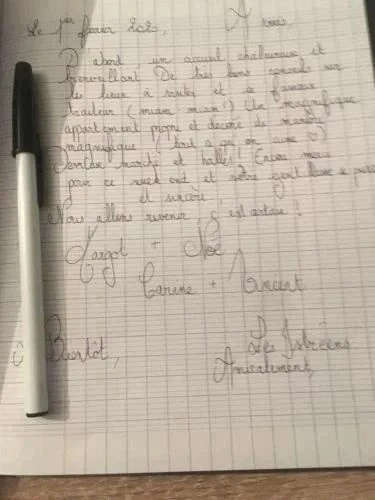 Le 1er février 202, A vous,
D'abord, un accueil chaleureux et
bienveillant. De très bons conseils sur
les lieux à visiter et ce fameux
traiteur (miam miam!) Un magnifique
appartement propre et décoré de manière
magnifique (tout ce qu'on aime ♡)
marché et halles! Encore merci
pour ce week end et votre
et sincère,
Nous allons revenir, c'est certain!
Margot + Noé
Carine + Vincent
à Bientôt, Les Istréens
Amicalement,